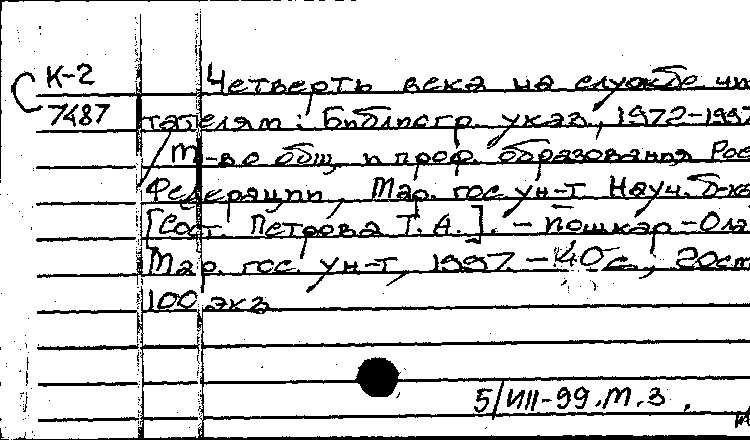 К-2
С 7487
Четверть века на службе чи
тателям: Библиогр. указ., 1972-1997
/ М-во общ. и проф. образования Рос.
Федерации, Мар. гос. ун-т. Науч. б-ка
[Сост. Петрова Т. А.]. - Йошкар-Ола
Мар. гос. ун-т, 1997. - 40 с.; 20см
100 экз
5/VIII-99. М. З.